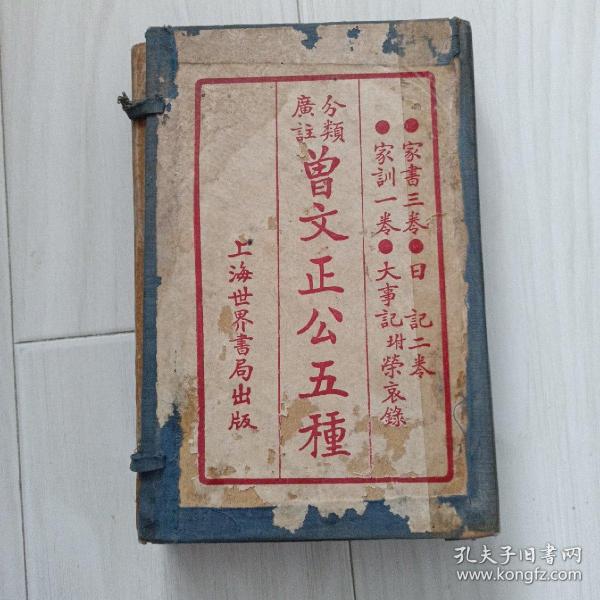 ●家書三卷●日記二卷
●家訓一卷●大事記附榮哀錄
分類
廣註
曾文正公五種
上海世界書局出版
孔夫子旧书网
www.kongfz.com